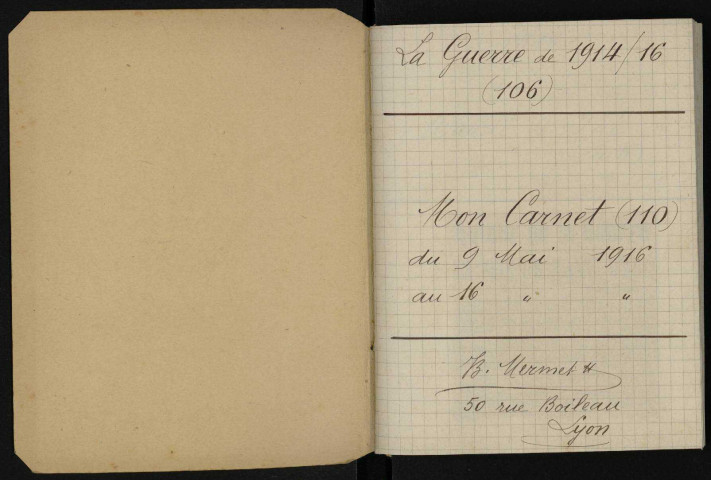 La Guerre de 1914/16
(106)
Mon Carnet (110)
du 9 Mai 1916
au 16 " "
B. Mermet
50 rue Boileau
Lyon